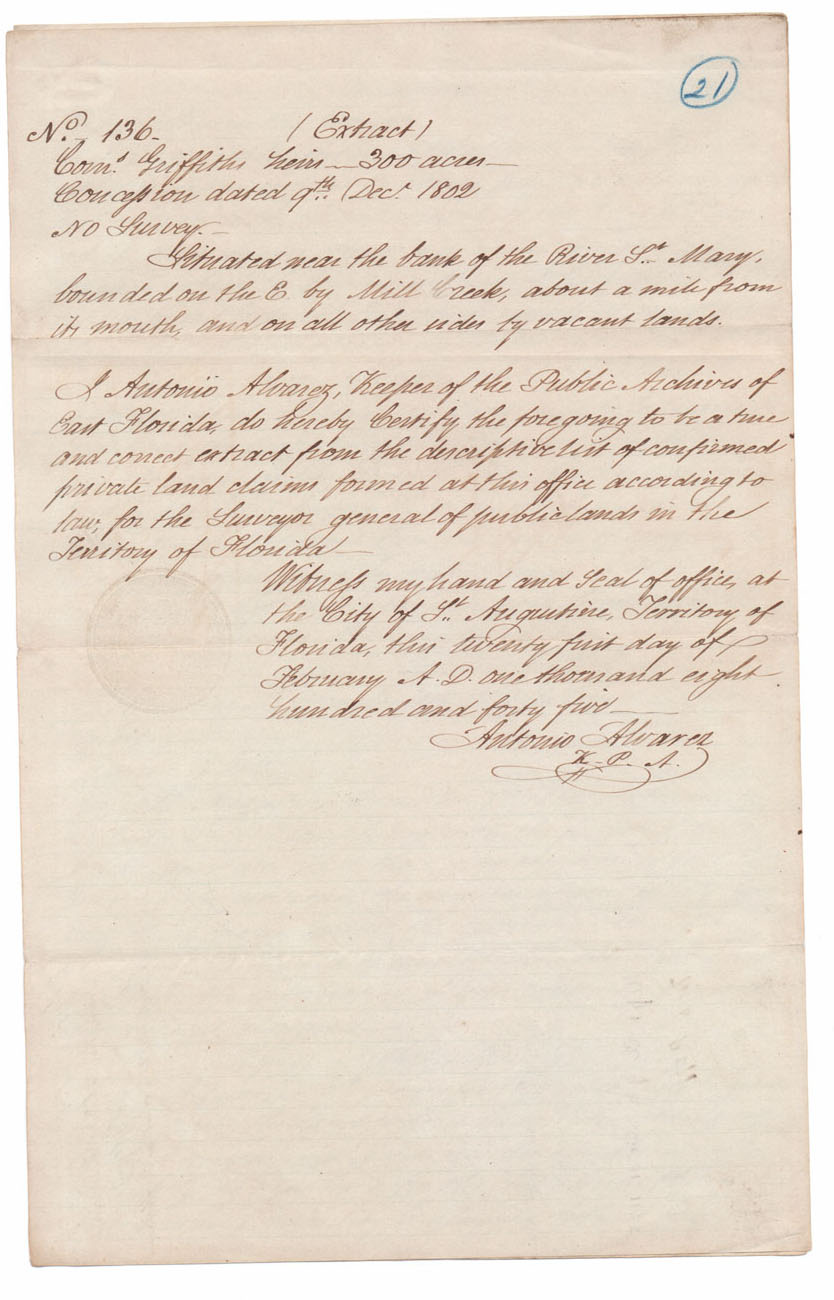 21
No. 136. (Extract)
Corns. Griffiths heirs — 300 acres —
Concession dated 9th Decr. 1802
No Survey. —
Situated near the bank of the River St. Mary,
bounded on the E. by Mill Creek, about a mile from
its mouth, and on all other sides by vacant lands.
I Antonio Alvarez, Keeper of the Public Archives of
East Florida, do hereby Certify, the foregoing to be a true
and correct extract from the descriptive list of confirmed
private land claims formed at this office according to
law, for the Surveyor general of public lands in the
Territory of Florida —
Witness my hand and Seal of office, at
the City of St. Augustine, Territory of
Florida, this twenty first day of
February A. D. one thousand eight
hundred and forty five —
Antonio Alvarez
K. P. A.